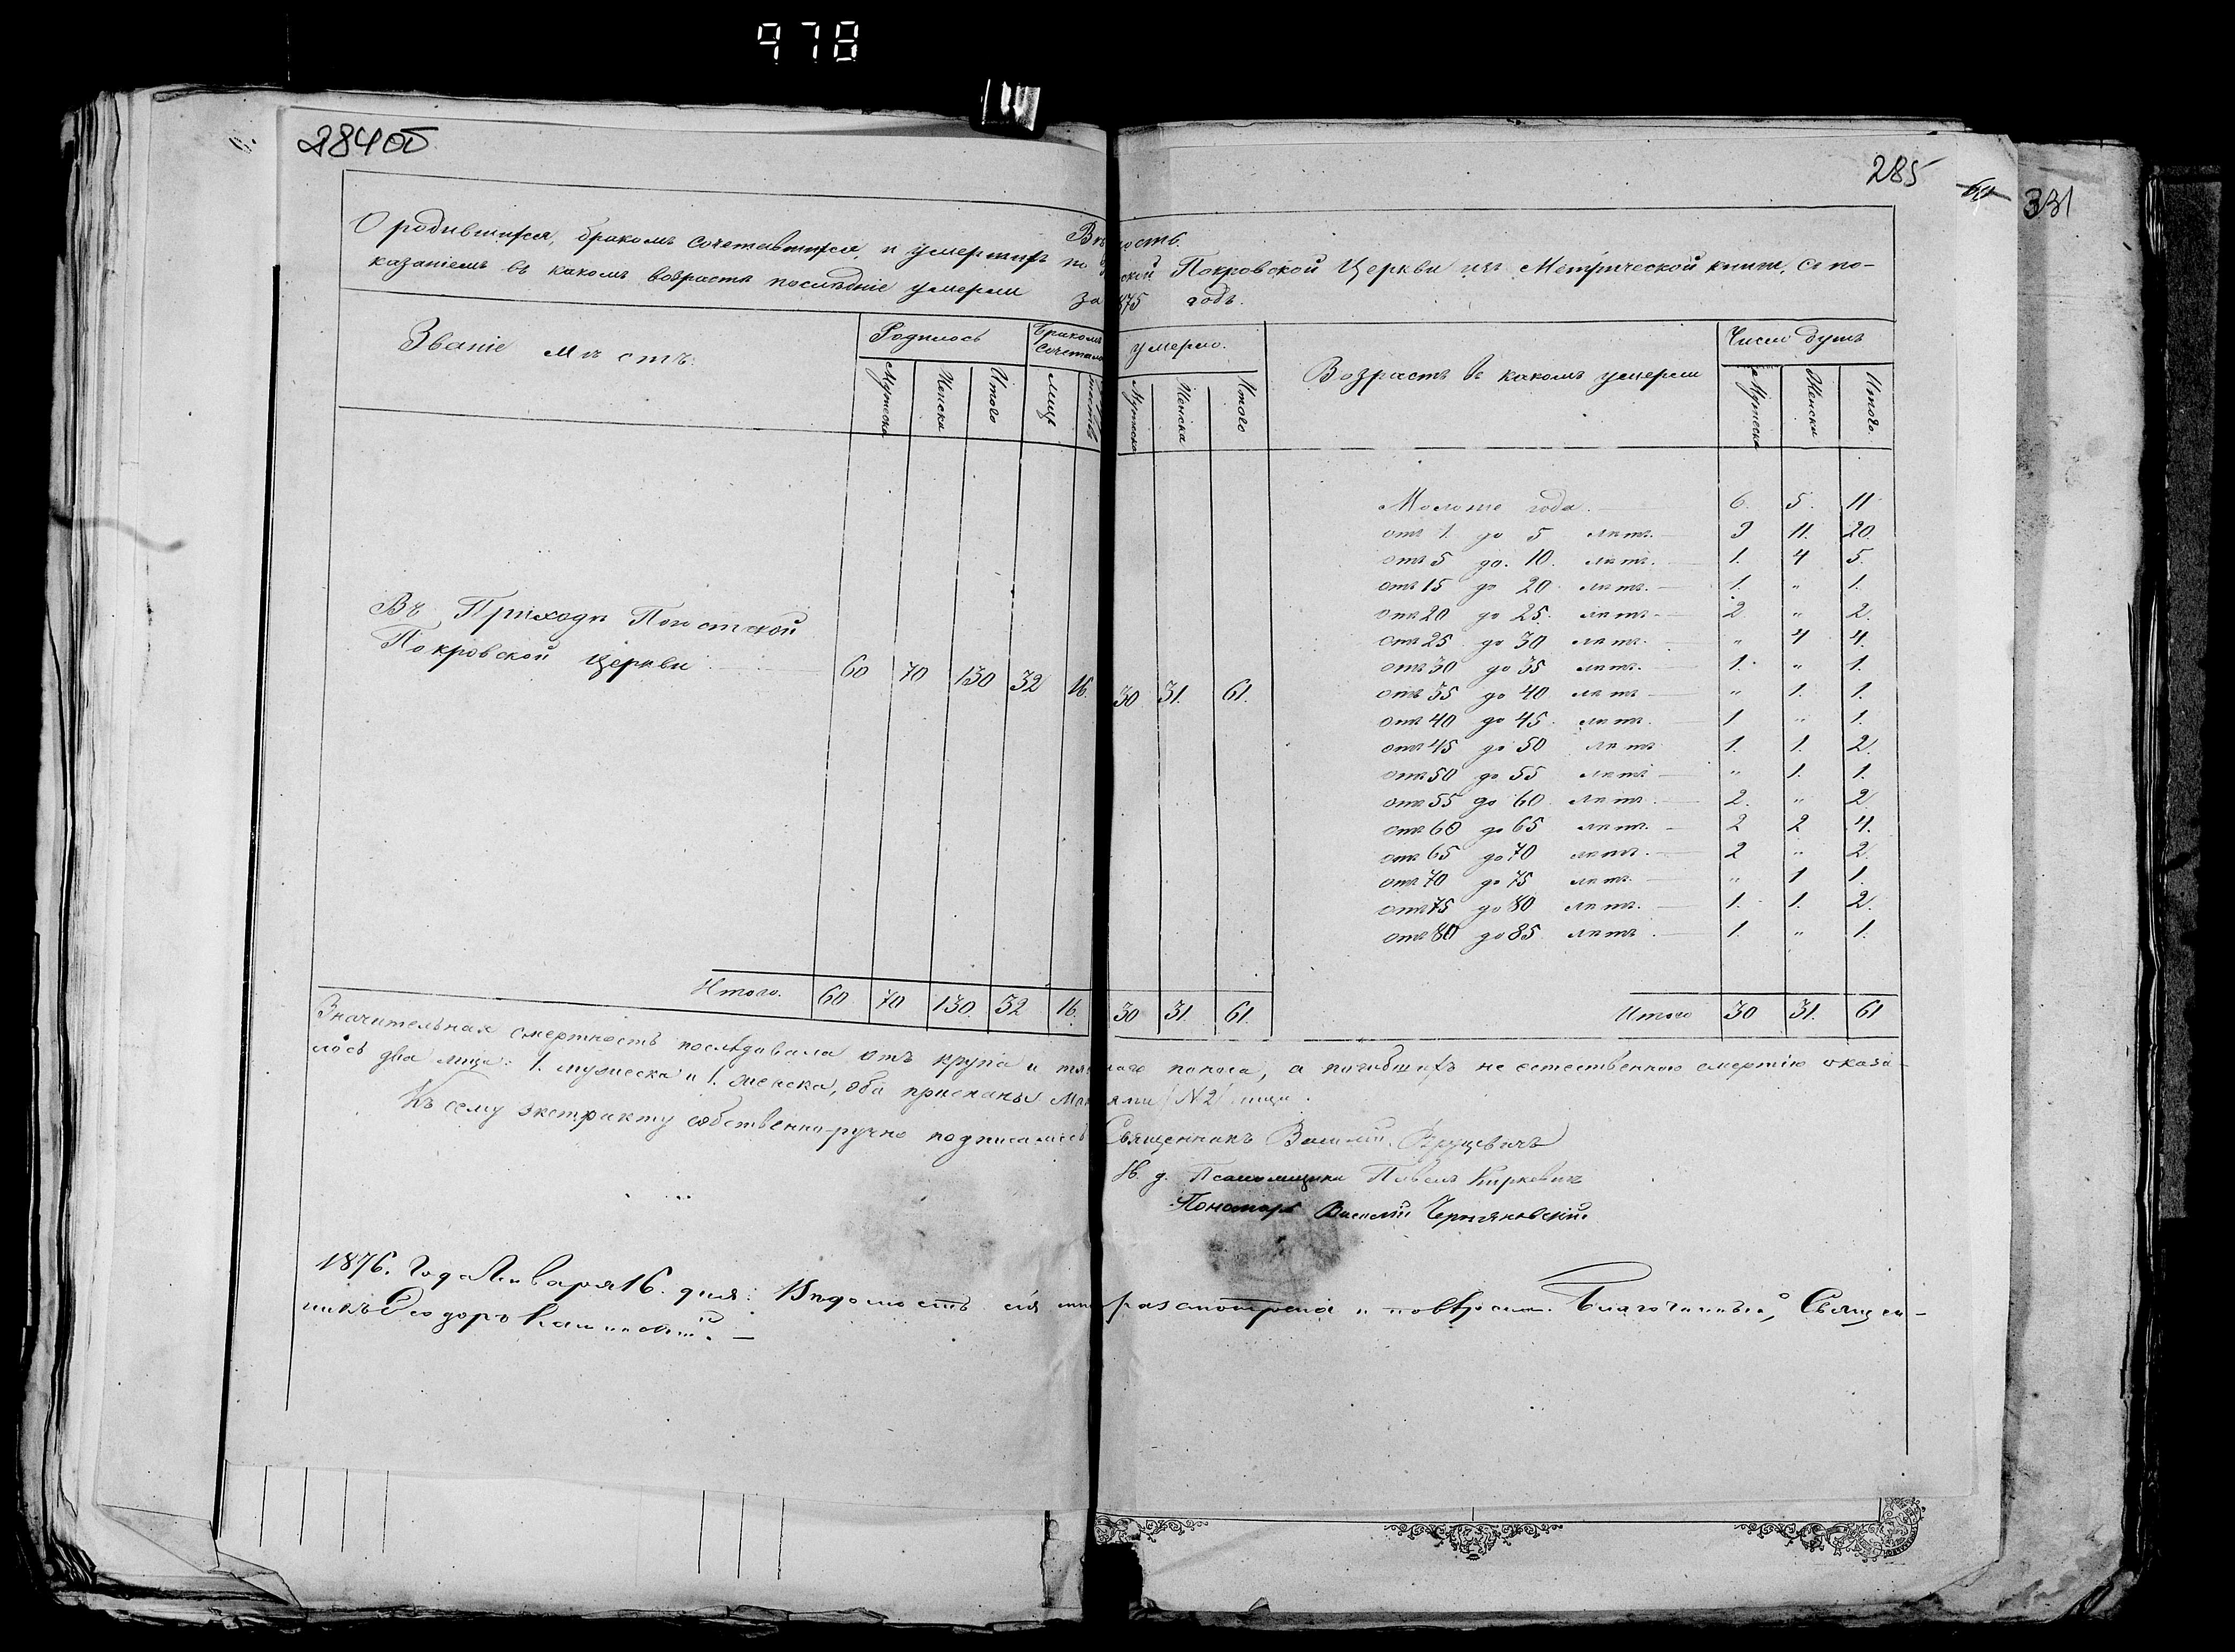 978
284об
285
64
331
Вѣ ость.
О родившихся, бракомъ сочетавшихся, и умершихъ по ской Покровской Церкви изъ Метрической книги, съ по-
казаніемъ въ какомъ возрастѣ послѣдніе умерли за 875 годъ.
Званіе мѣстъ. Родилось Бракомъ сочетало умерло. Возрастъ въ какомъ умерли Число душъ
Мужеска Женска Итого Лицъ Мужеска Женска Итого Мужеска Женска Итого.
Моложе года. 6. 5. 11
отъ 1. до 5 лѣтъ. 9 11. 20.
отъ 5 до. 10. лѣтъ. 1. 4 5.
отъ 15 до 20 лѣтъ. 1. „ 1.
отъ 20 до 25. лѣтъ. 2 „ 2.
отъ 25 до 30 лѣтъ. „ 4 4.
отъ 30 до 35 лѣтъ. 1. „ 1.
отъ 35 до 40 лѣтъ „ 1. 1.
отъ 40 до 45. лѣтъ. 1 „ 1.
отъ 45 до 50 лѣтъ 1. 1. 2.
отъ 50 до 55 лѣтъ „ 1. 1.
отъ 55 до 60 лѣтъ. 2. „ 2
отъ 60 до 65 лѣтъ. 2 2 4.
отъ 65 до 70 лѣтъ. 2 „ 2.
отъ 70 до 75 лѣтъ. „ 1 1.
отъ 75 до 80 лѣтъ. 1. 1. 2.
отъ 80 до 85 лѣтъ. 1. „ 1.
Въ Приходѣ Погостской
Покровской Церкви 60 70 130 32 16. 30 31. 61.
Итого. 60 70 130. 32 16. 30 31. 61.
Итого 30 31. 61
Значительная смертность послѣдовала отъ крупа и поноса, а погибшихъ не естественною смертію оказа-
лось два лица: 1. мужеска и 1. женска, оба
Къ сему экстракту собственно-ручно подписались Священникъ Василій
И. д. Псаломщика Павелъ Киркевичъ
Пономарь Василій Черняковскій
1876. Года Января 16. дня: Вѣдомость сія разсмотрена и повѣрена. Благочинный, Священ-
никъ Ѳеодоръ